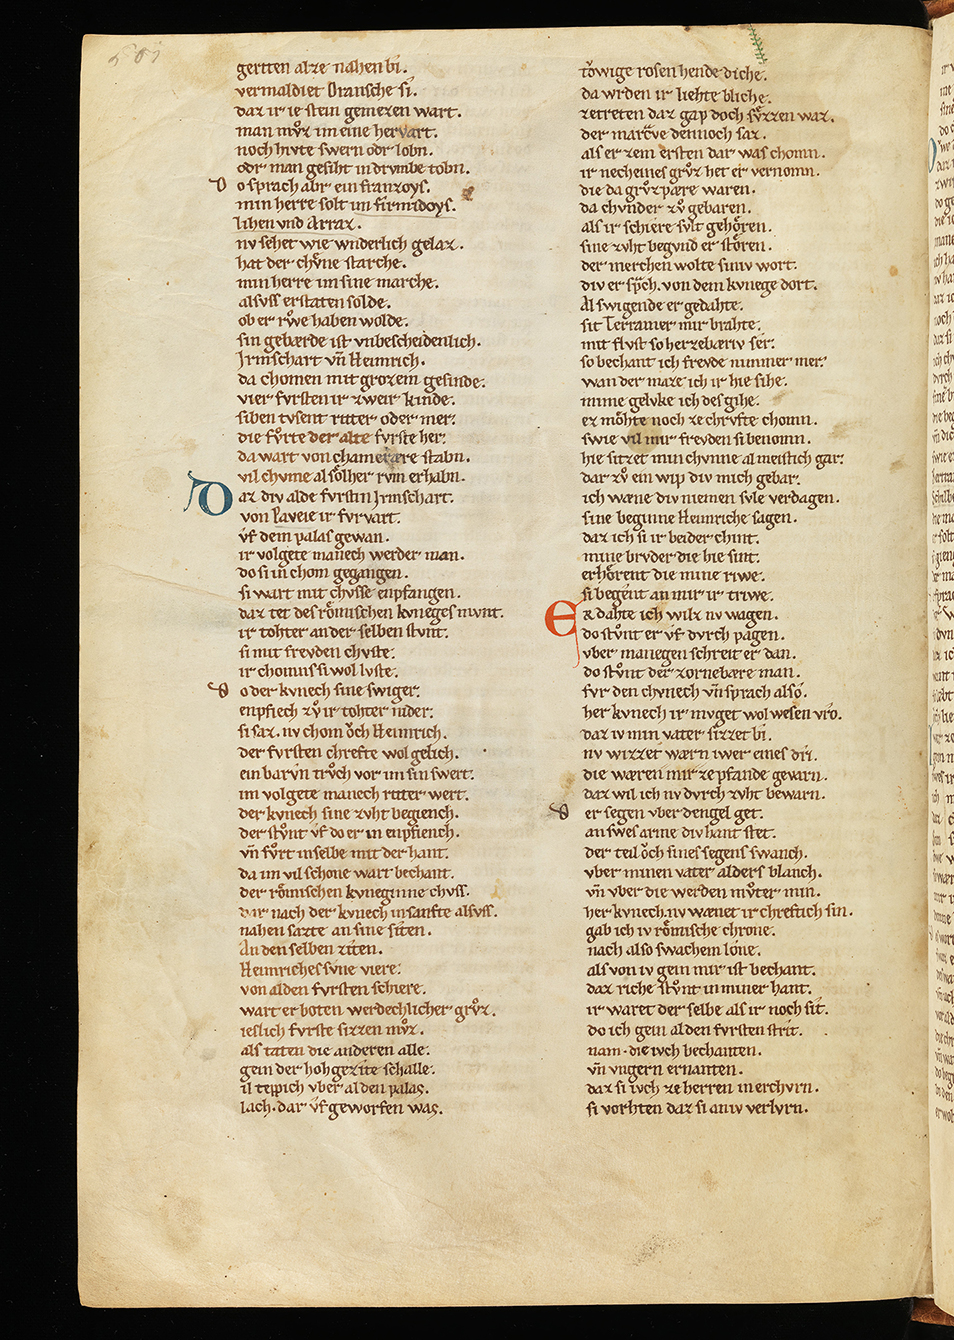 gertten alze nahen bi.
vermaldiet Oransche si.
daz ir ie stein gemezen wart.
man mvͦz im eine hervart.
noch hivte swern odr lobn.
odr man gesiht in drvmbe tobn.
Do sprach abr ein franzoys.
min herre solt im firmidoys.
lihen vnd Arraz.
nv sehet wie wnderlich gelaz.
hat der chvͤne starche.
min herre im sine marche.
alsvss erstaten solde.
ob er rv̊we haben wolde.
sin gebærde ist vnbescheidenlich.
Jrmschart vn̄ Heimrich.
da chomen mit grozem gesinde.
vier fvrsten ir zweir kinde.
siben tvsent ritter oder mer.
die fvͦrte der alte fvrste her.
da wart von chamerære stabn.
vil chvme al sölher rvm erhabn.
Daz div alde fvrstin Jrmschart.
von Paveie ir fvrvart.
v̂f dem palas gewan.
ir volgete manech werder man.
do si in chom gegangen.
si wart mit chvsse enpfangen.
daz tet des römischen kvneges mvnt.
ir tohter an der selben stvnt.
si mit frevden chvste.
ir chomns si wol lvste.
Do der kvnech sine swiger.
enpfiech zvͦ ir tohter nider.
si saz. nv chom ǒch Heimrich.
der fvrsten chrefte wol gelich.
ein barvn trvͦch vor im sin swert.
im volgete manech ritter wert.
der kvnech sine zvht begiench.
der stvͦnt v̂f do er in enpfiench.
vn̄ fvͦrt in selbe mit der hant.
da im vil schone wart bechant.
der römischen kvneginne chvss.
dar nach der kvnech in sanfte alsvss.
nahen sazte an sine siten.
An den selben ziten.
Heimriches svne viere.
von alden fvrsten schiere.
wart erboten werdechlicher grvͦz.
ieslich fvrste sizzen mvͦz.
als taten die anderen alle.
gein der hohgezite schalle.
il teppich vber al den palas.
lach. dar v̂f geworfen was.
tǒwige rosen hende diche.
da wrden ir liehte bliche.
zetreten daz gap doch svͤzzen waz.
der marcrave dennoch saz.
als er zem ersten dar was chomn.
ir necheines grvͦz het er vernomn.
die da grvͦzpære waren.
da chvnder zvͦ gebaren.
als ir schiere svlt gehören.
sine zvht begvnd er stören.
der merchen wolte siniv wort.
div er sp̄ch. von dem kvnege dort.
Al swigende er gedahte.
sit Terramer mir brahte.
mit flvst so herzebæriv ser.
so bechant ich frevde nimmer mer.
wan der maze ich ir hie sihe.
mime gelvke ich des gihe.
ez möhte noch ze chrvfte chomn.
swie vil mir frevden si benomn.
hie sitzet min chvnne al meistich gar.
dar zvͦ ein wip div mich gebar.
ich wæne div niemen svle verdagen.
sine beginne Heimriche sagen.
daz ich si ir beider chint.
mine brvder die hie sint.
erhörent die mine riwe.
si begent an mir ir triwe.
Er dahte ich wilz nv wagen.
do stvͦnt er v̂f dvrch pagen.
vber manegen schreit er dan.
do stvͦnt der zornebære man.
fvr den chvnech vn̄ sprach also.
her kvnech ir mvget wol wesen vro.
daz iv min vater sizzet bi.
nv wizzet wærn iwer eines dri.
die waren mir ze pfande gevarn.
daz wil ich nv dvrch zvht bewarn.
der segen vber den gel get.
an swes arme div hant stet.
der teil ǒch sines segens swanch.
vber minen vater alders blanch.
vn̄ vber die werden mvͦter min.
her kvnech. nv wænet ir chreftich sin.
gab ich iv römische chrone.
nach also swachem lone.
als von iv gein mir ist bechant.
daz riche stvͦnt in miner hant.
ir waret der selbe als ir noch sit.
do ich gein al den fvrsten strit.
nam. die ivch bechanten.
vn̄ vngern ernanten.
daz si ivch ze herren in erchvrn.
si vorhten daz si an iv verlvrn.